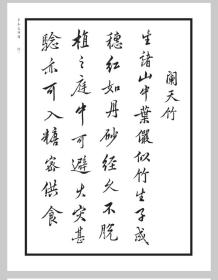 阑天竹
生诸山中葉儼似竹生子成
穗红如丹砂经久不脱
植之庭中可避火灾甚
验亦可入糖蜜供食